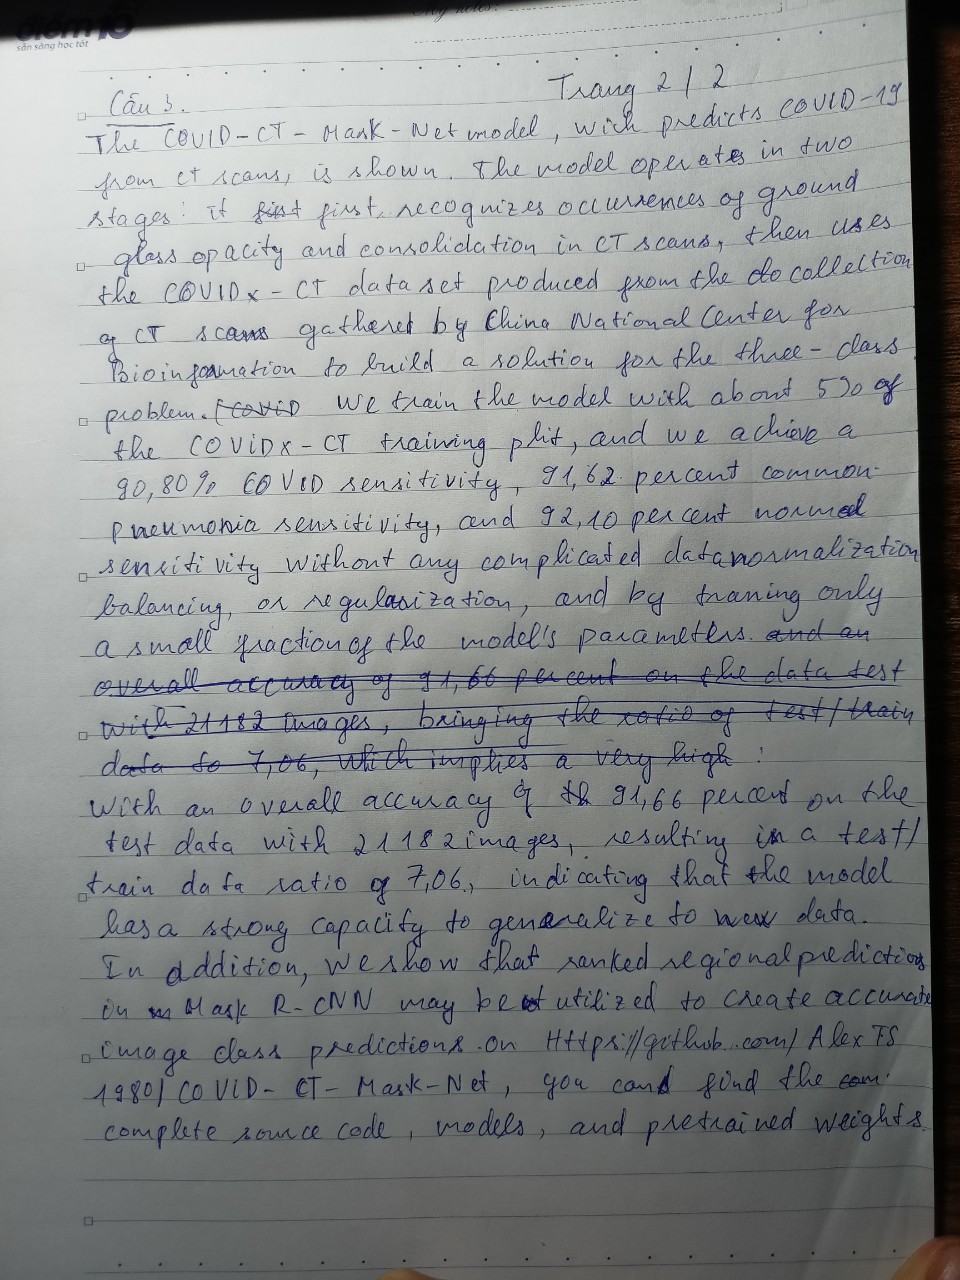 điểm 10
sẵn sàng học tốt
Trang 2 / 2
Câu 3.
The COVID-CT-Mask-Net model, wich predicts COVID-19
from ct scans, is shown. The model operates in two
stages: it first first, recognizes occurrences of ground
glass opacity and consolidation in CT scans, then uses
the COVIDx-CT data set produced from the do collection
of CT scans gathered by China National Center for
Bioinformation to build a solution for the three-class
problem. (COVID We train the model with about 5% of
the COVIDx-CT training plit, and we achieve a
90,80% COVID sensitivity, 91,62 percent common
Pneumonia sensitivity, and 92,10 percent normal
sensitivity without any complicated data normalization
balancing, or regularization, and by traning only
a small fraction of the model's parameters. and an
overall accuracy of 91,66 percent on the data test
with 21182 images, bringing the ratio of test/train
data to 7,06, which implies a very high
With an overall accuracy of th 91,66 percent on the
test data with 21182 images, resulting in a test/
train data ratio of 7,06, indicating that the model
has a strong capacity to generalize to new data.
In addition, we show that ranked regional predictions
in m Mask R-CNN may be utilized to create accurate
image class predictions. on Https://github.com/AlexTS
1980/COVID-CT-Mask-Net, you can find the com
complete source code, models, and pretrained weights.